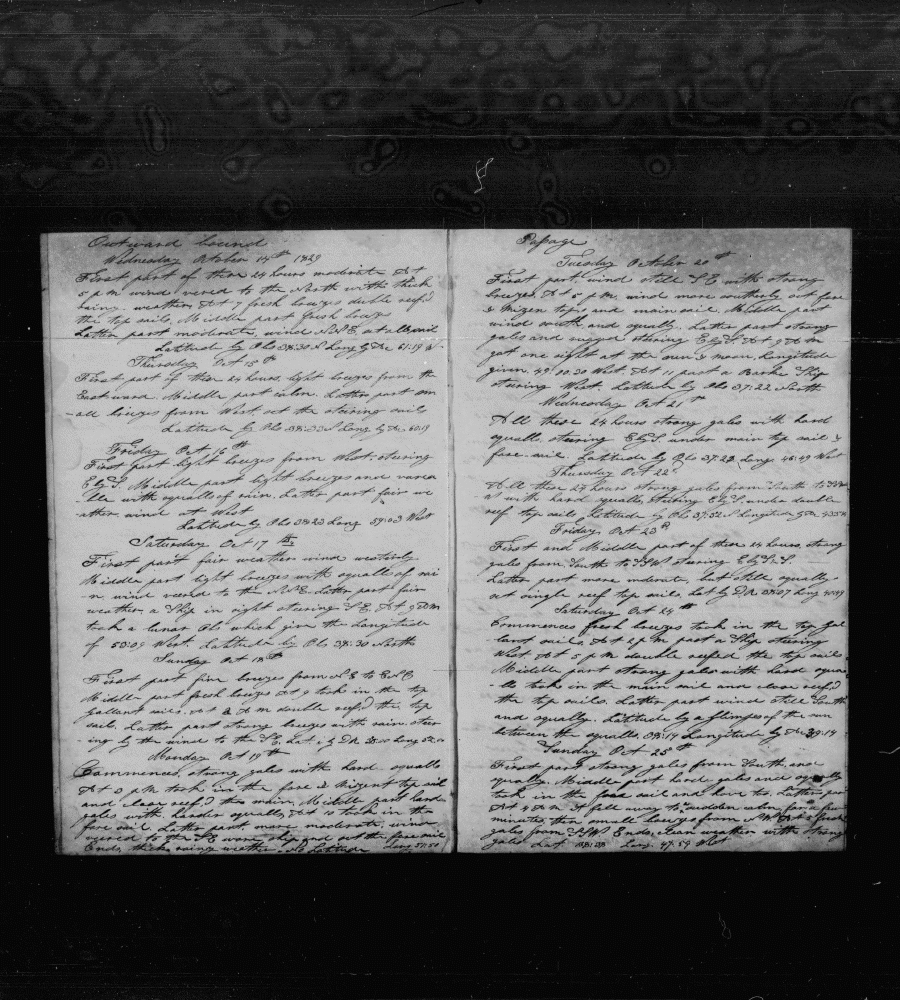 Outward bound
Wednesday October 14th 1829
First part of these 24 hours moderate At
5 p m wind vered to the North with thick
rainy weather At 7 fresh breezes duble reef'd
the top sails, Middle part fresh breeze
Latter part moderate, wind N N E out all sail
Latitude by Obs 38:30 N Long by Dr 61:19 W
Thursday Oct 15th
First part of these 24 hours light breezes from the
Eastward. Middle part calm. Latter part sm
-all breezes from West, out the steering sails
Latitude by Obs Long by Dr 60:19
Friday Oct 16th
First part light breezes from West, stearing
E by S. Middle part light breezes and varea
ble with squalls of rain. Latter part fair we
ather wind at West
Latitude by Obs 38:23 Long 59:03 West
Saturday Oct 17th
First part fair weather wind westerly
Middle part light breezes with squalls of rai
n. wind veered to the N.E. Latter part fair
weather, a Ship in sight stearing S.E. At 9 Am
took a lunar Obs which give the Longitude
of 55:09 West. Latitude by Obs 38:30 North
Sunday Oct 18th
First part fine breezes from N E to E N E
Middle part fresh breezes at 9 took in the top
Gallant sails. at 2 A m double reef'd the top
sails. Latter part strong breezes with rain. steer
-ing by the wind to the S E. Lat by DR Long
Monday Oct 19th
Commences, strong gales with hard squalls
At p m took in the fore & Mizent top sail
and close reef'd the main. Middle part hard
gales with harder squalls, At 10 took in the
fore sail Latter part more moderate. wind
veered to the S E the fore sail
Ends, thick rainy weather. No Latitude Long 51:50
Passage
Tuesday October 20th
First part, wind still S E with strong
breezes. At 5 p m. wind more southerly, out fore
& Mizen top, and main sail. Middle part
wind south and squally. Latter part strong
gales and rugged stearing E by S At 9 A m
got one sight at the sun & moon, Longitude
given, 49:00:30 West. At 11 past a Barke Ship
stearing West. Latitude by Obs 37:22 North
Wednesday Oct 21st
All these 24 hours strong gales with hard
squalls. stearing E by S under main top sail &
fore-sail. Latitude by Obs 37:29 Longe 46:49 West
Thursday Oct 22d
All these 24 hours strong gales from South to SSW
with hard squalls, stearing E by S. under double
reef top sails, Latitude by Obs 37:52 N Longitude by Dr
Friday Oct 23d
First and Middle part of these 24 hours, strong
gales from South to SSW stearing E by S
Latter part more moderate, but still squally
out single reef top sails, Lat by DR 38:07 Long
Saturday Oct 24th
Commences fresh breezes took in the top gal
-lant sails. At 2 p m past a Ship stearing
West. At 5 p m double reefed the top sails
Middle part strong gales with hard squa
-lls took in the main sail and close reef'd
the top sails. Latter part wind still South
and squally. Latitude by a glimpse of the sun
between the squalls, 38:14 Longitude by Dr 39:14
Sunday Oct 25th
First part strong gales from South, and
squally. Middle part hard gales and squally
took in the fore sail and hove too. Latter part
At 4 A m it fell away to sudden calm, for a few
minutes, then small breezes from N W At 8 fresh
gales from SSW Ends, clean weather with strong
gales Lat 38:28 Long. 47:54 West